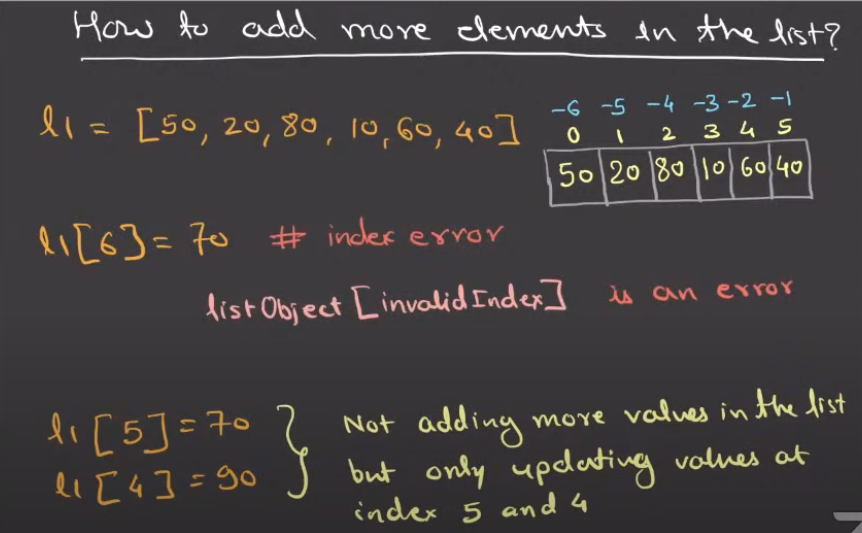 How to add more elements in the list?
-6 -5 -4 -3 -2 -1
l1 = [50, 20, 80, 10, 60, 40] 0 1 2 3 4 5
50 20 80 10 60 40
l1[6] = 70 # index error
listObject [invalidIndex] is an error
l1[5] = 70 Not adding more values in the list
l1[4] = 90 but only updating values at
index 5 and 4